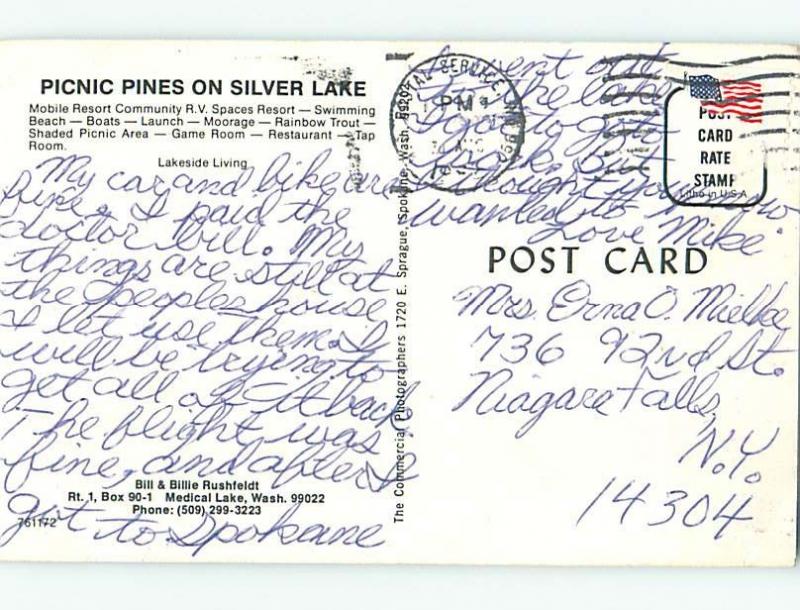 PICNIC PINES ON SILVER LAKE
Mobile Resort Community R.V. Spaces Resort — Swimming
Beach — Boats — Launch — Moorage — Rainbow Trout —
Shaded Picnic Area — Game Room — Restaurant — Tap
Room.
Lakeside Living
My car and bike are
fine. I paid the
doctor bill. My
things are still at
the peoples house
I let use them. I
will be trying to
get all of it back.
The flight was
fine, and after I
got to Spokane
Bill & Billie Rushfeldt
Rt. 1, Box 90-1 Medical Lake, Wash. 99022
Phone: (509) 299-3223
761172
The Commercial Photographers 1720 E. Sprague, Spokane, Wash. 99202
POSTAL SERVICE
PM
I went out
to the lake
I got
back, but
thought you
wanted to know
Love Mike
POST
CARD
RATE
STAMP
Litho in U.S.A
POST CARD
Mrs. Erna O. Mielke
736 92nd St.
Niagara Falls,
N.Y.
14304